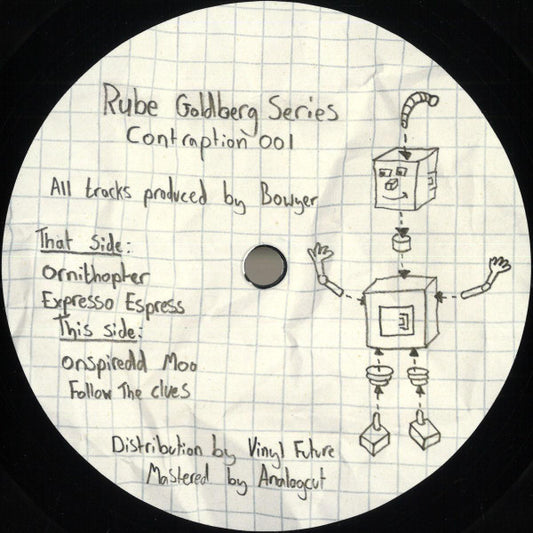 Rube Goldberg Series
Contraption 001
All tracks produced by Bowyer
That side:
Ornithopter
Expresso Espress
This side:
Onspiredd Moo
Follow The clues
Distribution by Vinyl Future
Mastered by Analogcut